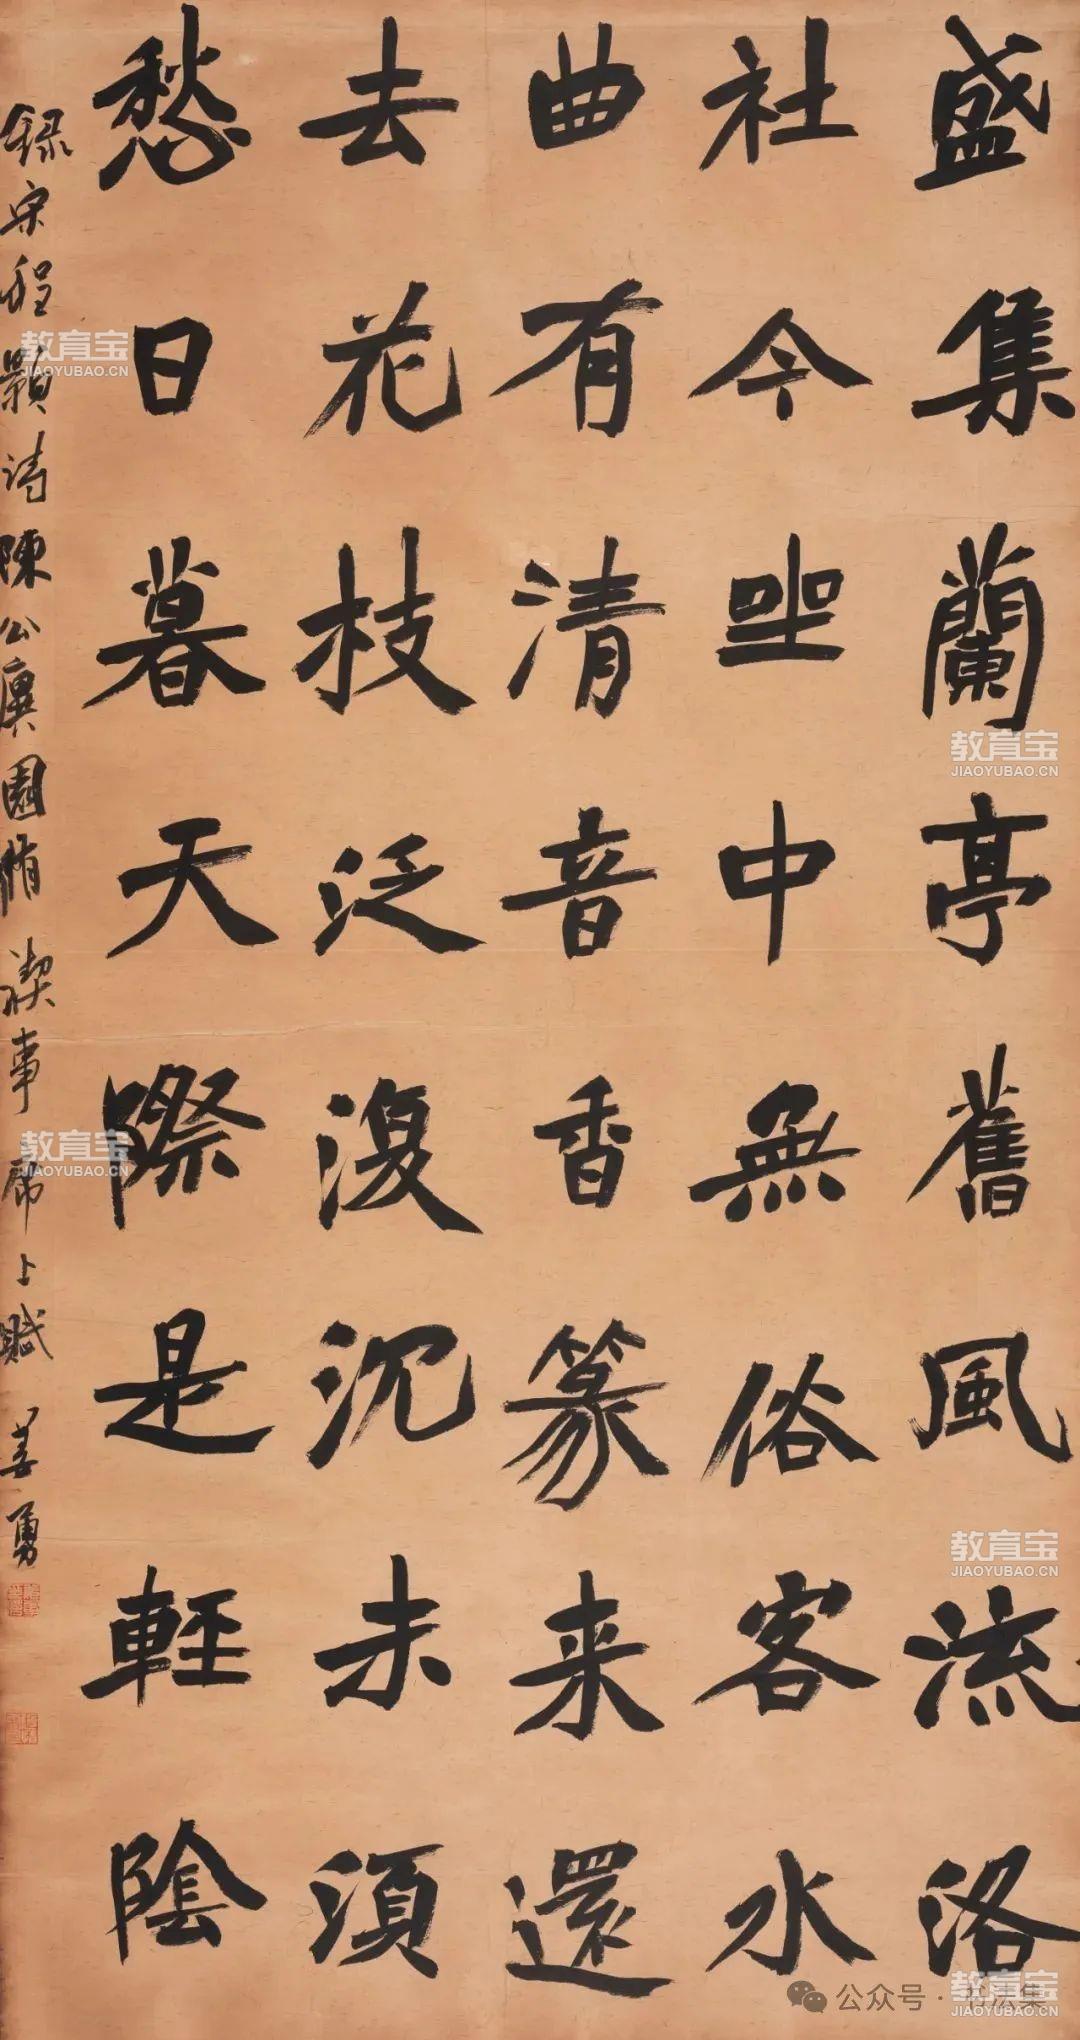 盛集蘭亭舊風流洛
社今坐中無俗客水
曲有清音香篆来還
去花枝泛復沉未須
愁日暮天際是輕陰
録宋程顥詩陳公廙園脩禊事席上賦 姜勇
教育宝
JIAOYUBAO.CN
教育宝
JIAOYUBAO.CN
教育宝
JIAOYUBAO.CN
教育宝
JIAOYUBAO.CN
教育宝
JIAOYUBAO.CN
公众号·书法集